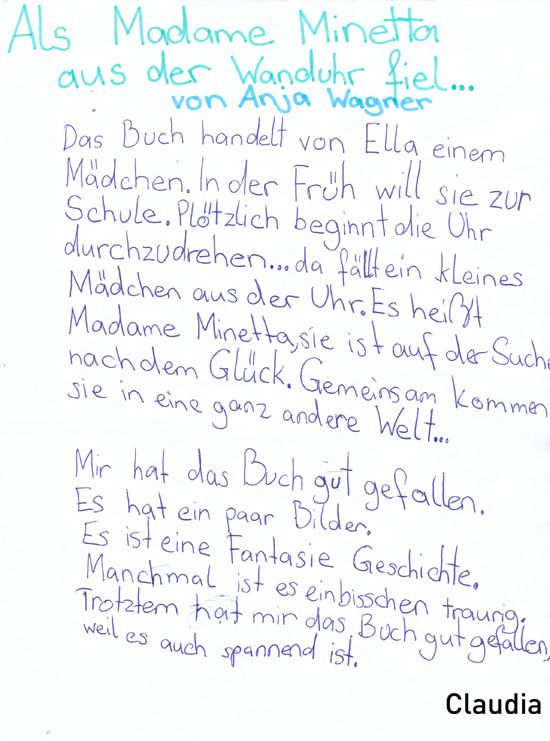 Als Madame Minetta
aus der Wanduhr fiel...
von Anja Wagner
Das Buch handelt von Ella einem
Mädchen. In der Früh will sie zur
Schule. Plötzlich beginnt die Uhr
durchzudrehen... da fällt ein kleines
Mädchen aus der Uhr. Es heißt
Madame Minetta, sie ist auf der Suche
nach dem Glück. Gemeinsam kommen
sie in eine ganz andere Welt...
Mir hat das Buch gut gefallen.
Es hat ein paar Bilder.
Es ist eine Fantasie Geschichte.
Manchmal ist es einbisschen traurig.
Trotztem hat mir das Buch gut gefallen,
weil es auch spannend ist.
Claudia